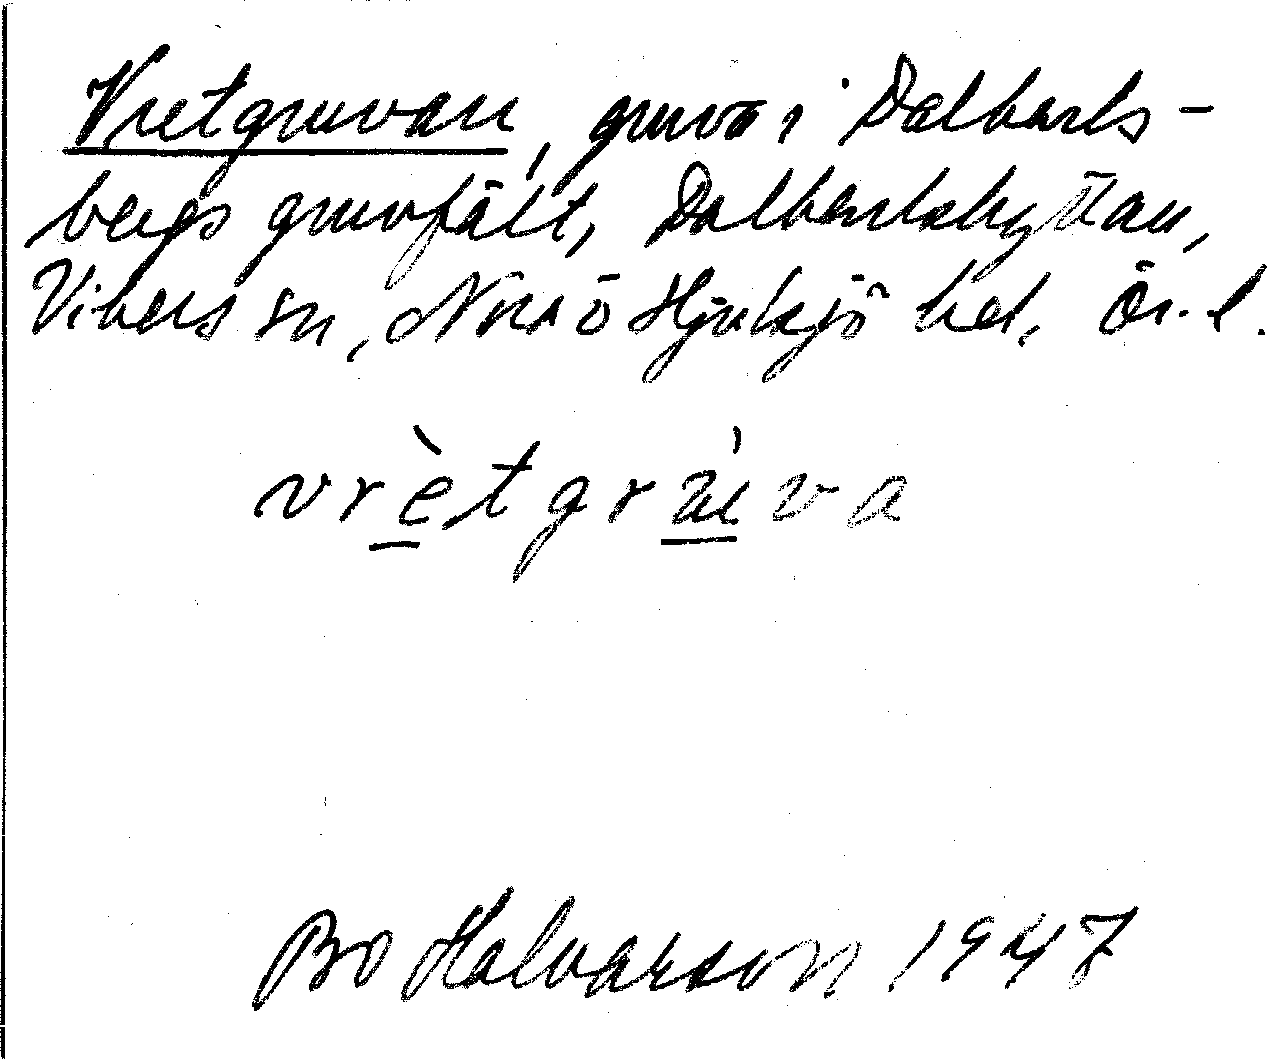 Vretgruvan, gruva i Dalkarls-
bergs gruvfält, Dalkarlshyttan,
Vikers sn, Nora o Hjulsjö hd, Ör. l.
vrètgrúva
Bo Halvarson 1947